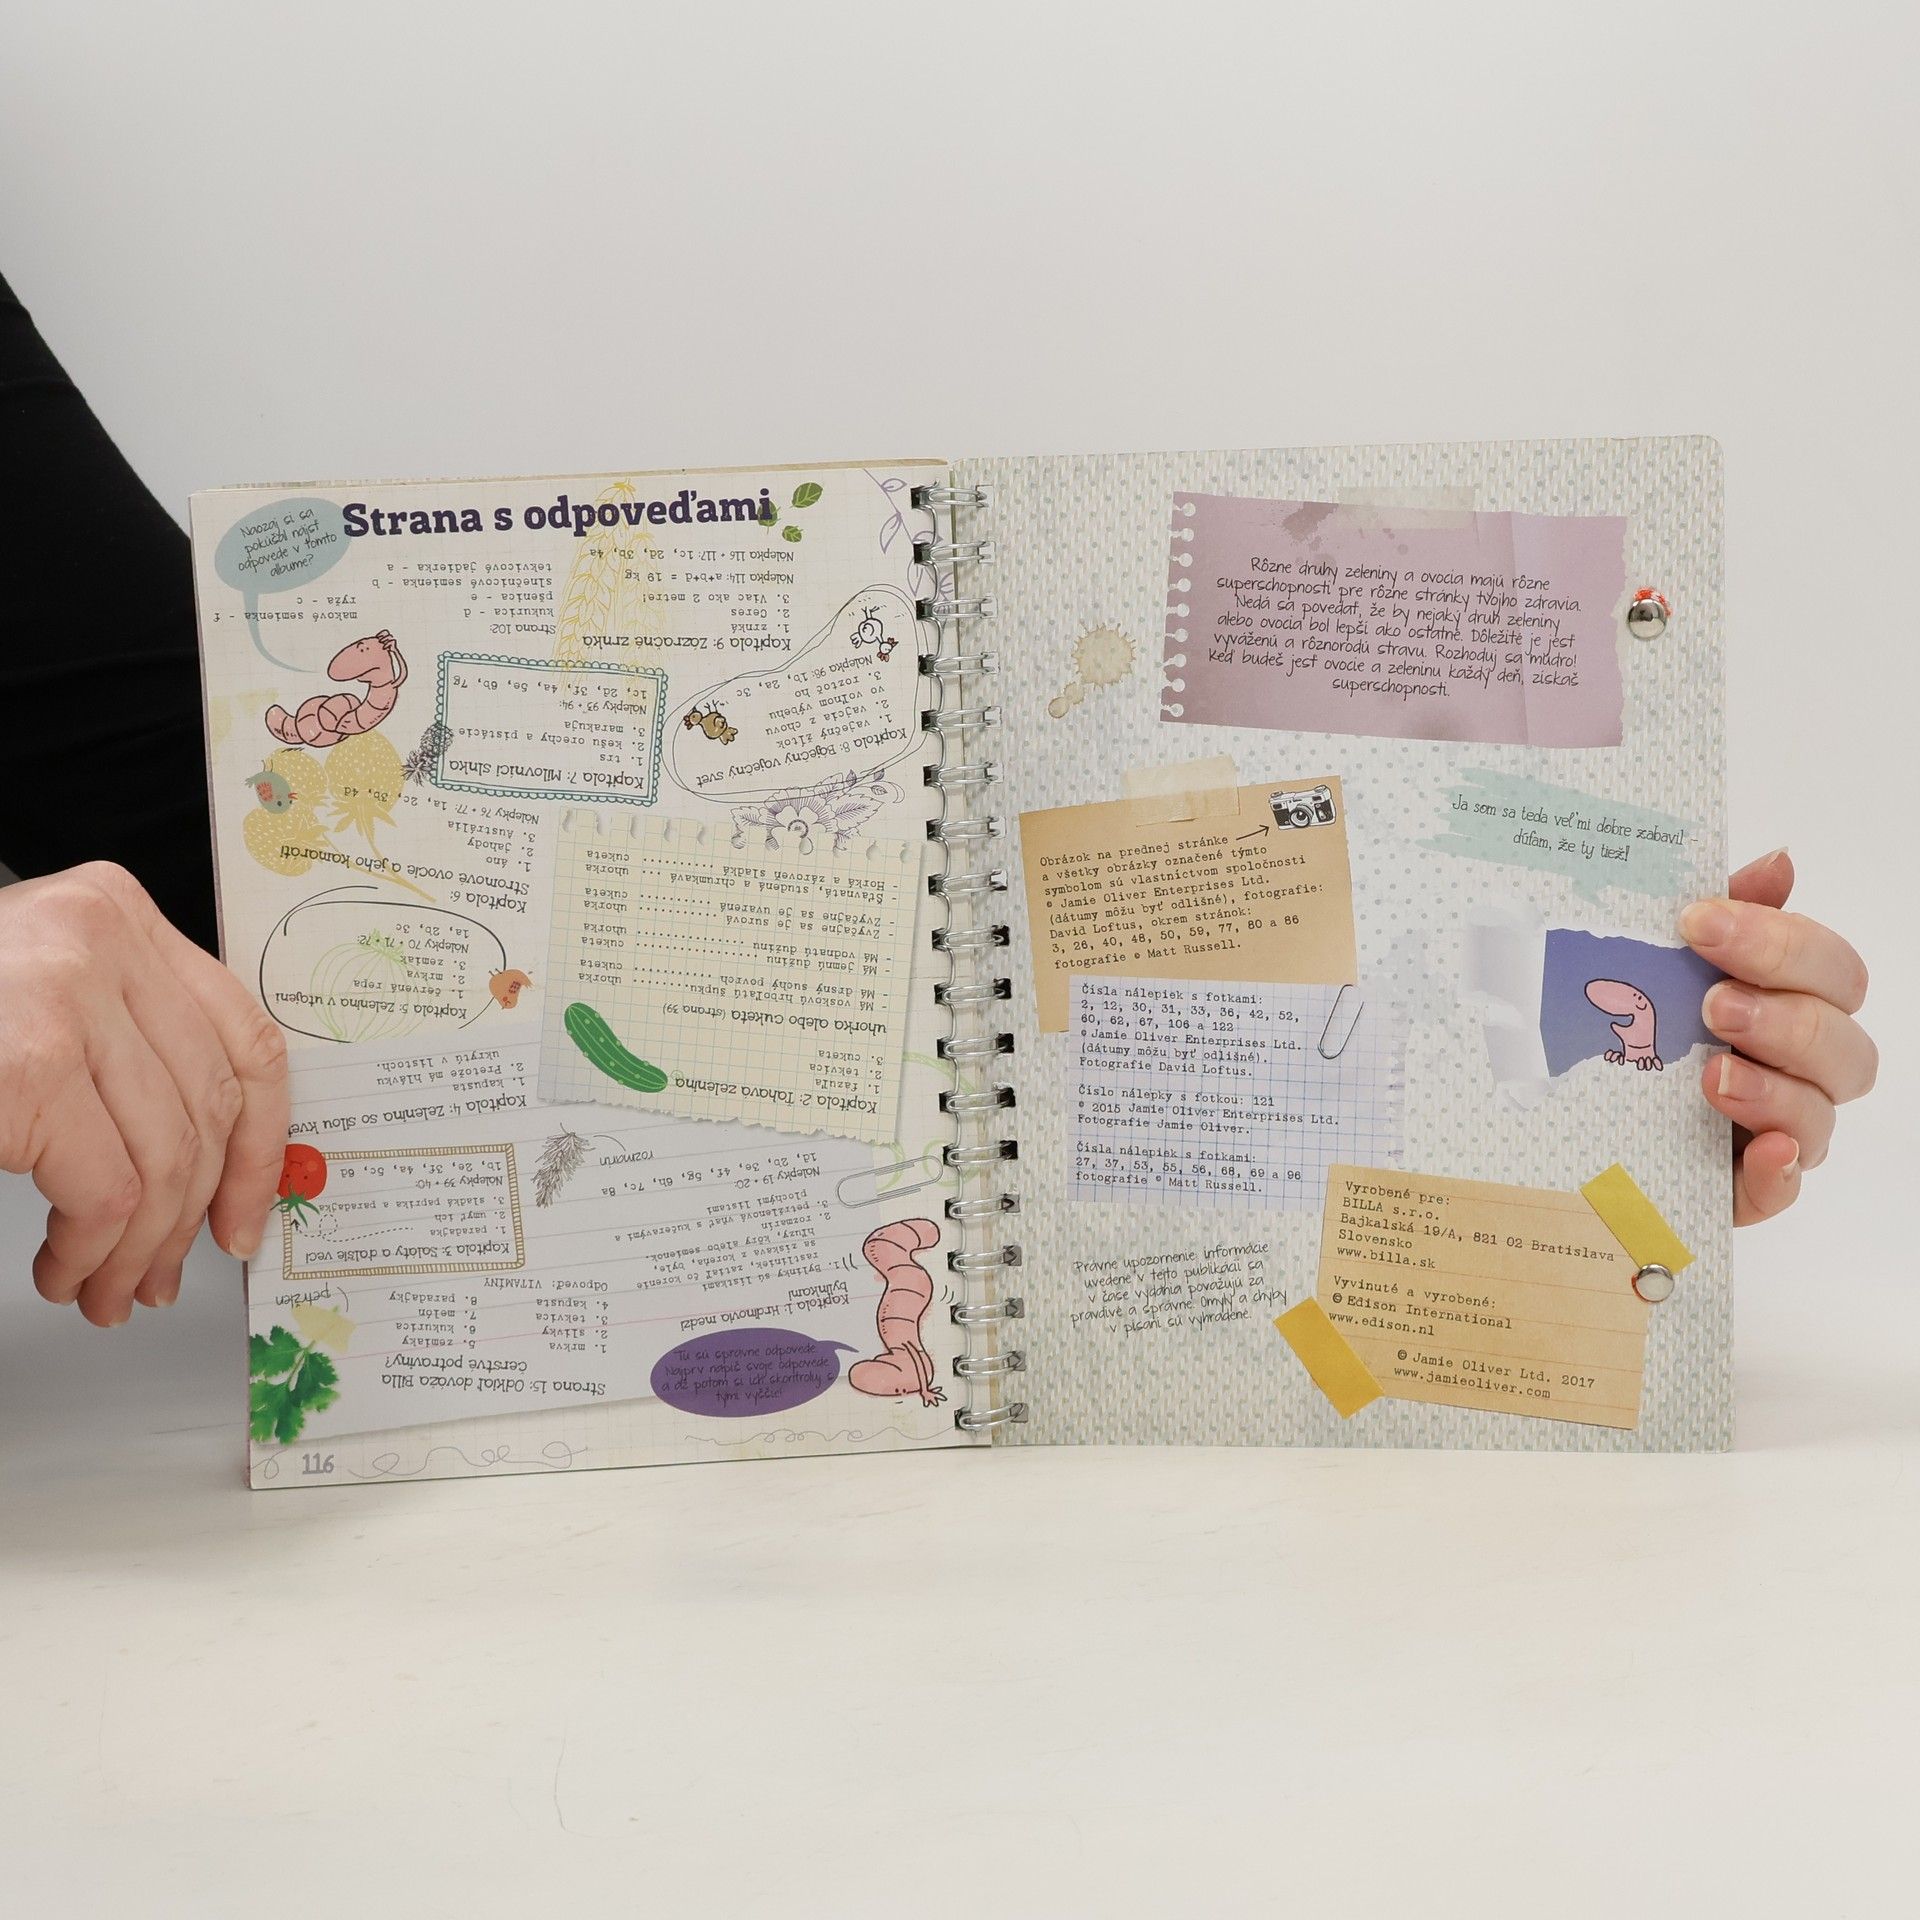 Strana s odpoveďami
Naozaj si sa
pokúšal nájsť
odpovede v tomto
albume?
Tu sú správne odpovede.
Najprv napíš svoje odpovede
a až potom si ich skontroluj s
tými vyššie!
Strana 15: Odkiaľ dováža Billa
čerstvé potraviny?
1. mrkva
2. slivky
3. tekvica
4. kapusta
5. zemiaky
6. kukurica
7. melón
8. paradajky
Odpoveď: VITAMÍNY
petržlen
Kapitola 1: Hrdinovia medzi
bylinkami
1. Bylinky sú lístkami
rastliniek, zatiaľ čo korenie
sa získava z koreňa, byle,
hľuzy, kôry alebo semienok.
2. rozmarín
3. petržlenová vňať s kučeravými a
plochými listami
Nálepky 19 + 20:
1d, 2b, 3e, 4f, 5g, 6h, 7c, 8a
rozmarín
Kapitola 3: Šaláty a ďalšie veci
1. paradajka
2. umyť ich
3. sladká paprika a paradajka
Nálepky 39 + 40:
1b, 2e, 3f, 4a, 5c, 6d
Kapitola 2: Ťahavá zelenina
1. fazuľa
2. tekvica
3. cuketa
uhorka alebo cuketa (strana 39)
- Má voskovú hrboľatú šupku. uhorka
- Má drsný suchý povrch cuketa
- Má jemnú dužinu cuketa
- Má vodnatú dužinu uhorka
- Zvyčajne sa je surová uhorka
- Zvyčajne sa je uvarená cuketa
- Šťavnatá, studená a chrumkavá ... uhorka
- Horká a zároveň sladká cuketa
Kapitola 4: Zelenina so silou
1. kapusta
2. Pretože má hlávku
ukrytú v listoch.
Kapitola 5: Zelenina v utajení
1. červená repa
2. mrkva
3. zemiak
Nálepky 70 + 71 + 72:
1a, 2b, 3c
Kapitola 6:
Stromové ovocie a jeho kamaráti
1. áno
2. jahody
3. Austrália
Nálepky 76 + 77: 1a, 2c, 3b, 4d
Kapitola 7: Milovníci slnka
1. trs
2. kešu orechy a pistácie
3. marakuja
Nálepky 93 + 94:
1c, 2d, 3f, 4a, 5e, 6b, 7g
Kapitola 8: Báječný vaječný svet
1. vaječný žĺtok
2. vajcia z chovu
vo voľnom výbehu
3. roztoč ho
Nálepka 98: 1b, 2a, 3c
Kapitola 9: Zázračné zrnká
1. zrnká
2. Ceres
3. Viac ako 2 metre!
Nálepka 114: a+b+d = 19 kg
Nálepka 116 + 117: 1c, 2d, 3b, 4a
Strana 102:
kukurica - d
pšenica - e
slnečnicové semienka - b
tekvicové jadierka - a
makové semienka - f
ryža - c
116
Rôzne druhy zeleniny a ovocia majú rôzne
superschopnosti pre rôzne stránky tvojho zdravia.
Nedá sa povedať, že by nejaký druh zeleniny
alebo ovocia bol lepší ako ostatné. Dôležité je jesť
vyváženú a rôznorodú stravu. Rozhoduj sa múdro!
Keď budeš jesť ovocie a zeleninu každý deň, získaš
superschopnosti.
Ja som sa teda veľmi dobre zabavil –
dúfam, že ty tiež!
Obrázok na prednej stránke
a všetky obrázky označené týmto
symbolom sú vlastníctvom spoločnosti
© Jamie Oliver Enterprises Ltd.
(dátumy môžu byť odlišné), fotografie:
David Loftus, okrem stránok:
3, 26, 40, 48, 50, 59, 77, 80 a 86
fotografie © Matt Russell.
Čísla nálepiek s fotkami:
2, 12, 30, 31, 33, 36, 42, 52,
60, 62, 67, 106 a 122
© Jamie Oliver Enterprises Ltd.
(dátumy môžu byť odlišné).
Fotografie David Loftus.
Číslo nálepky s fotkou: 121
© 2015 Jamie Oliver Enterprises Ltd.
Fotografie Jamie Oliver.
Čísla nálepiek s fotkami:
27, 37, 53, 55, 56, 68, 69 a 96
fotografie © Matt Russell.
Právne upozornenie: Informácie
uvedené v tejto publikácii sa
v čase vydania považujú za
pravdivé a správne. Omyly a chyby
v písaní sú vyhradené.
Vyrobené pre:
BILLA s.r.o.
Bajkalská 19/A, 821 02 Bratislava
Slovensko
www.billa.sk
Vyvinuté a vyrobené:
© Edison International
www.edison.nl
© Jamie Oliver Ltd. 2017
www.jamieoliver.com